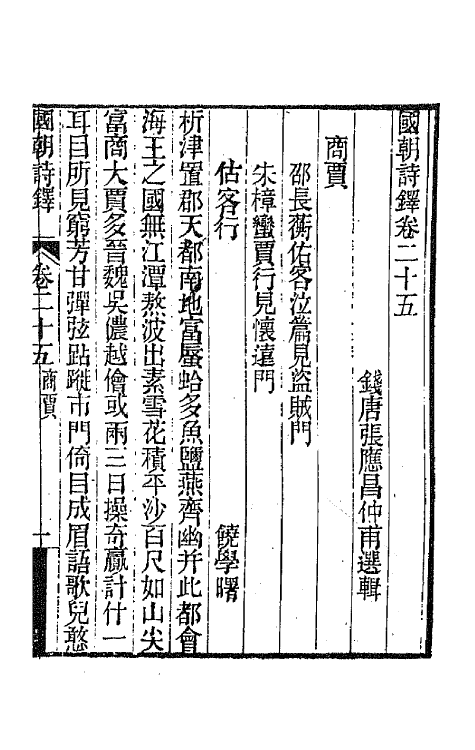 國朝詩鐸卷二十五
錢唐張應昌仲甫選輯
商賈
邵長蘅估客泣篇見盜賊門
朱樟蠻賈行見懷遠門
估客行
饒學曙
析津置郡天都南地富蜃蛤多魚鹽燕齊幽并此都會
海王之國無江潭熬波出素雪花積平沙百尺如山尖
富商大賈多晉魏吳儂越儈或兩三日操奇贏計什一
耳目所見窮芳甘彈弦跕躧市門倚目成眉語歌兒憨
國朝詩鐸
卷二十五
商賈
一